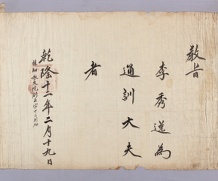 教旨
李秀遠爲
通訓大夫
者
乾隆十二年二月十九日